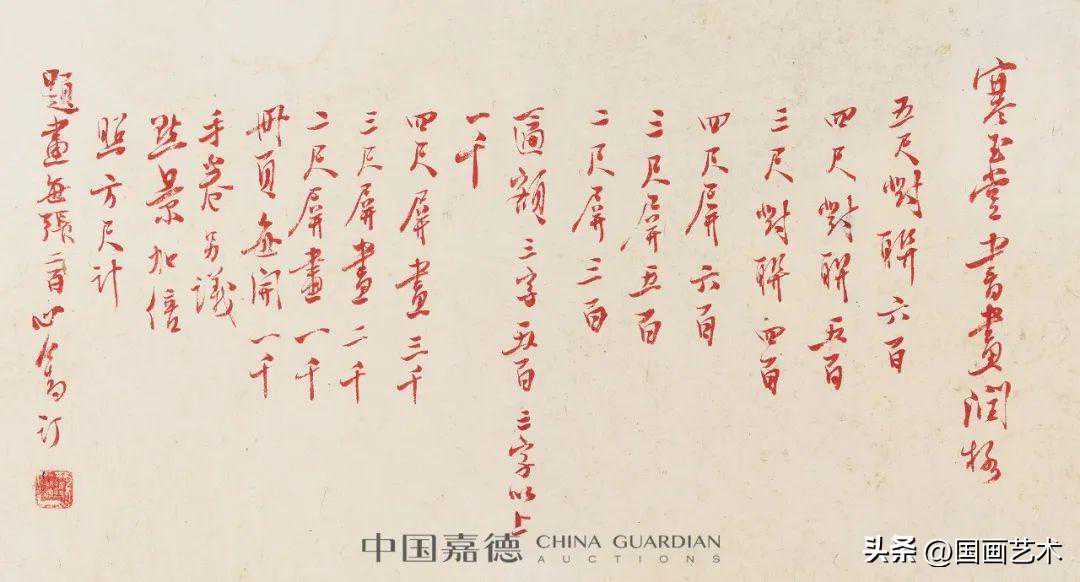 寒玉堂書畫潤格
五尺對聯六百
四尺對聯五百
三尺對聯四百
四尺屏六百
三尺屏五百
二尺屏三百
匾額三字五百三字以上
一千
四尺屏畫三千
三尺屏畫二千
二尺屏畫一千
冊頁每開一千
手卷另議
點景加倍
照方尺計
題畫每張二百 心畬訂
中国嘉德 CHINA GUARDIAN
AUCTIONS
头条 @国画艺术